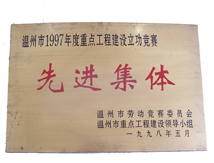 温州市1997年度重点工程建设立功竞赛
先进集体
温州市劳动竞赛委员会
温州市重点工程建设领导小组
一九九八年五月